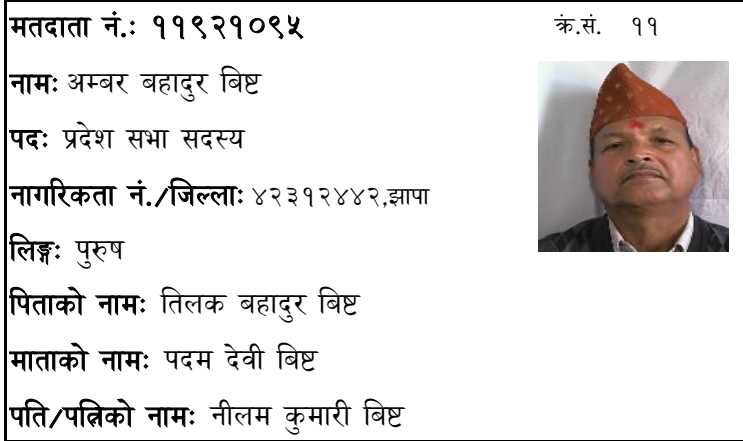 मतदाता नं.: ११९२१०९५ क्रं.सं. ११
नामः अम्बर बहादुर बिष्ट
पदः प्रदेश सभा सदस्य
नागरिकता नं./जिल्लाः ४२३१२४४२,झापा
लिङ्गः पुरुष
पिताको नामः तिलक बहादुर बिष्ट
माताको नामः पदम देवी बिष्ट
पति/पत्निको नामः नीलम कुमारी बिष्ट